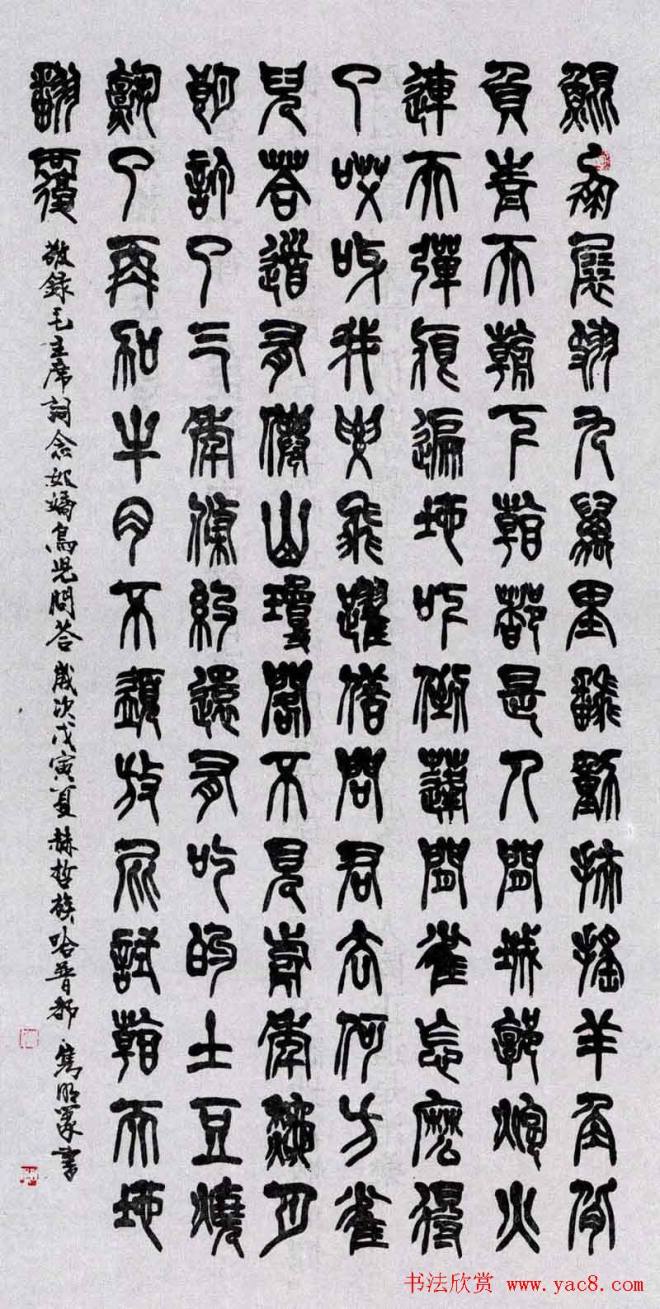 鯤鵬展翅九萬里翻動扶搖羊角背
負青天朝下看都是人間城郭炮火
連天彈痕遍地吓倒蓬間雀怎麽得
了哎呀我要飛躍借問君去何方雀
兒荅道有僊山瓊閣不見前年秋月
朗訂了三家條約還有吃的土豆燒
熟了再加牛肉不須放屁試看天地
翻覆
敬録毛主席詞念奴嬌鳥兒問荅 歲次戊寅夏赫哲族哈普都雋明篆書
书法欣赏 www.yac8.com